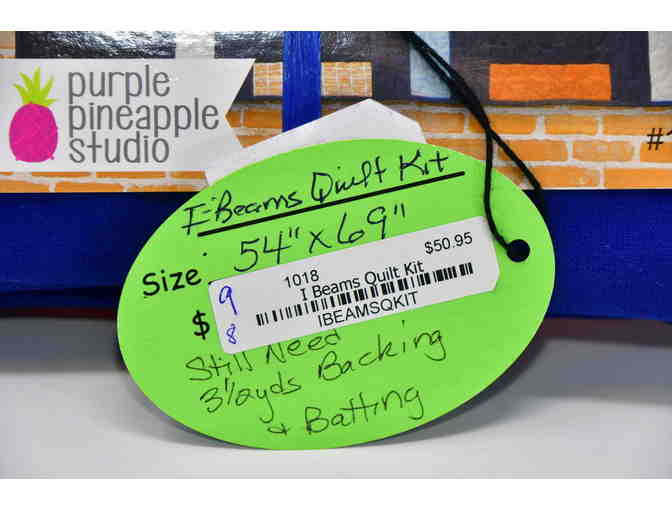 purple
pineapple
studio
#1
I-Beams Quilt Kit
Size: 54" x 69"
$50.95
1018
I Beams Quilt Kit
IBEAMSQKIT
9
8
$
Still Need
3 1/2 yds Backing
& Batting